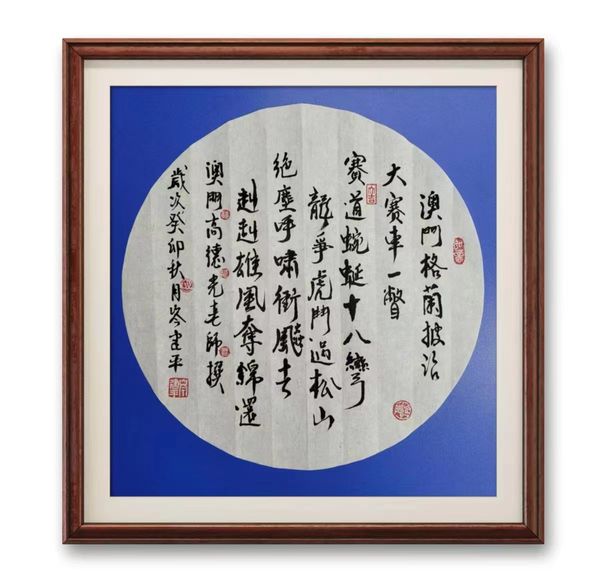 澳門格蘭披治
大賽車一瞥
賽道蜿蜒十八彎
龍爭虎鬥過松山
絕塵呼嘯衝飈去
赳赳雄風奪錦還
澳門高德光老師撰
歲次癸卯秋月岑建平